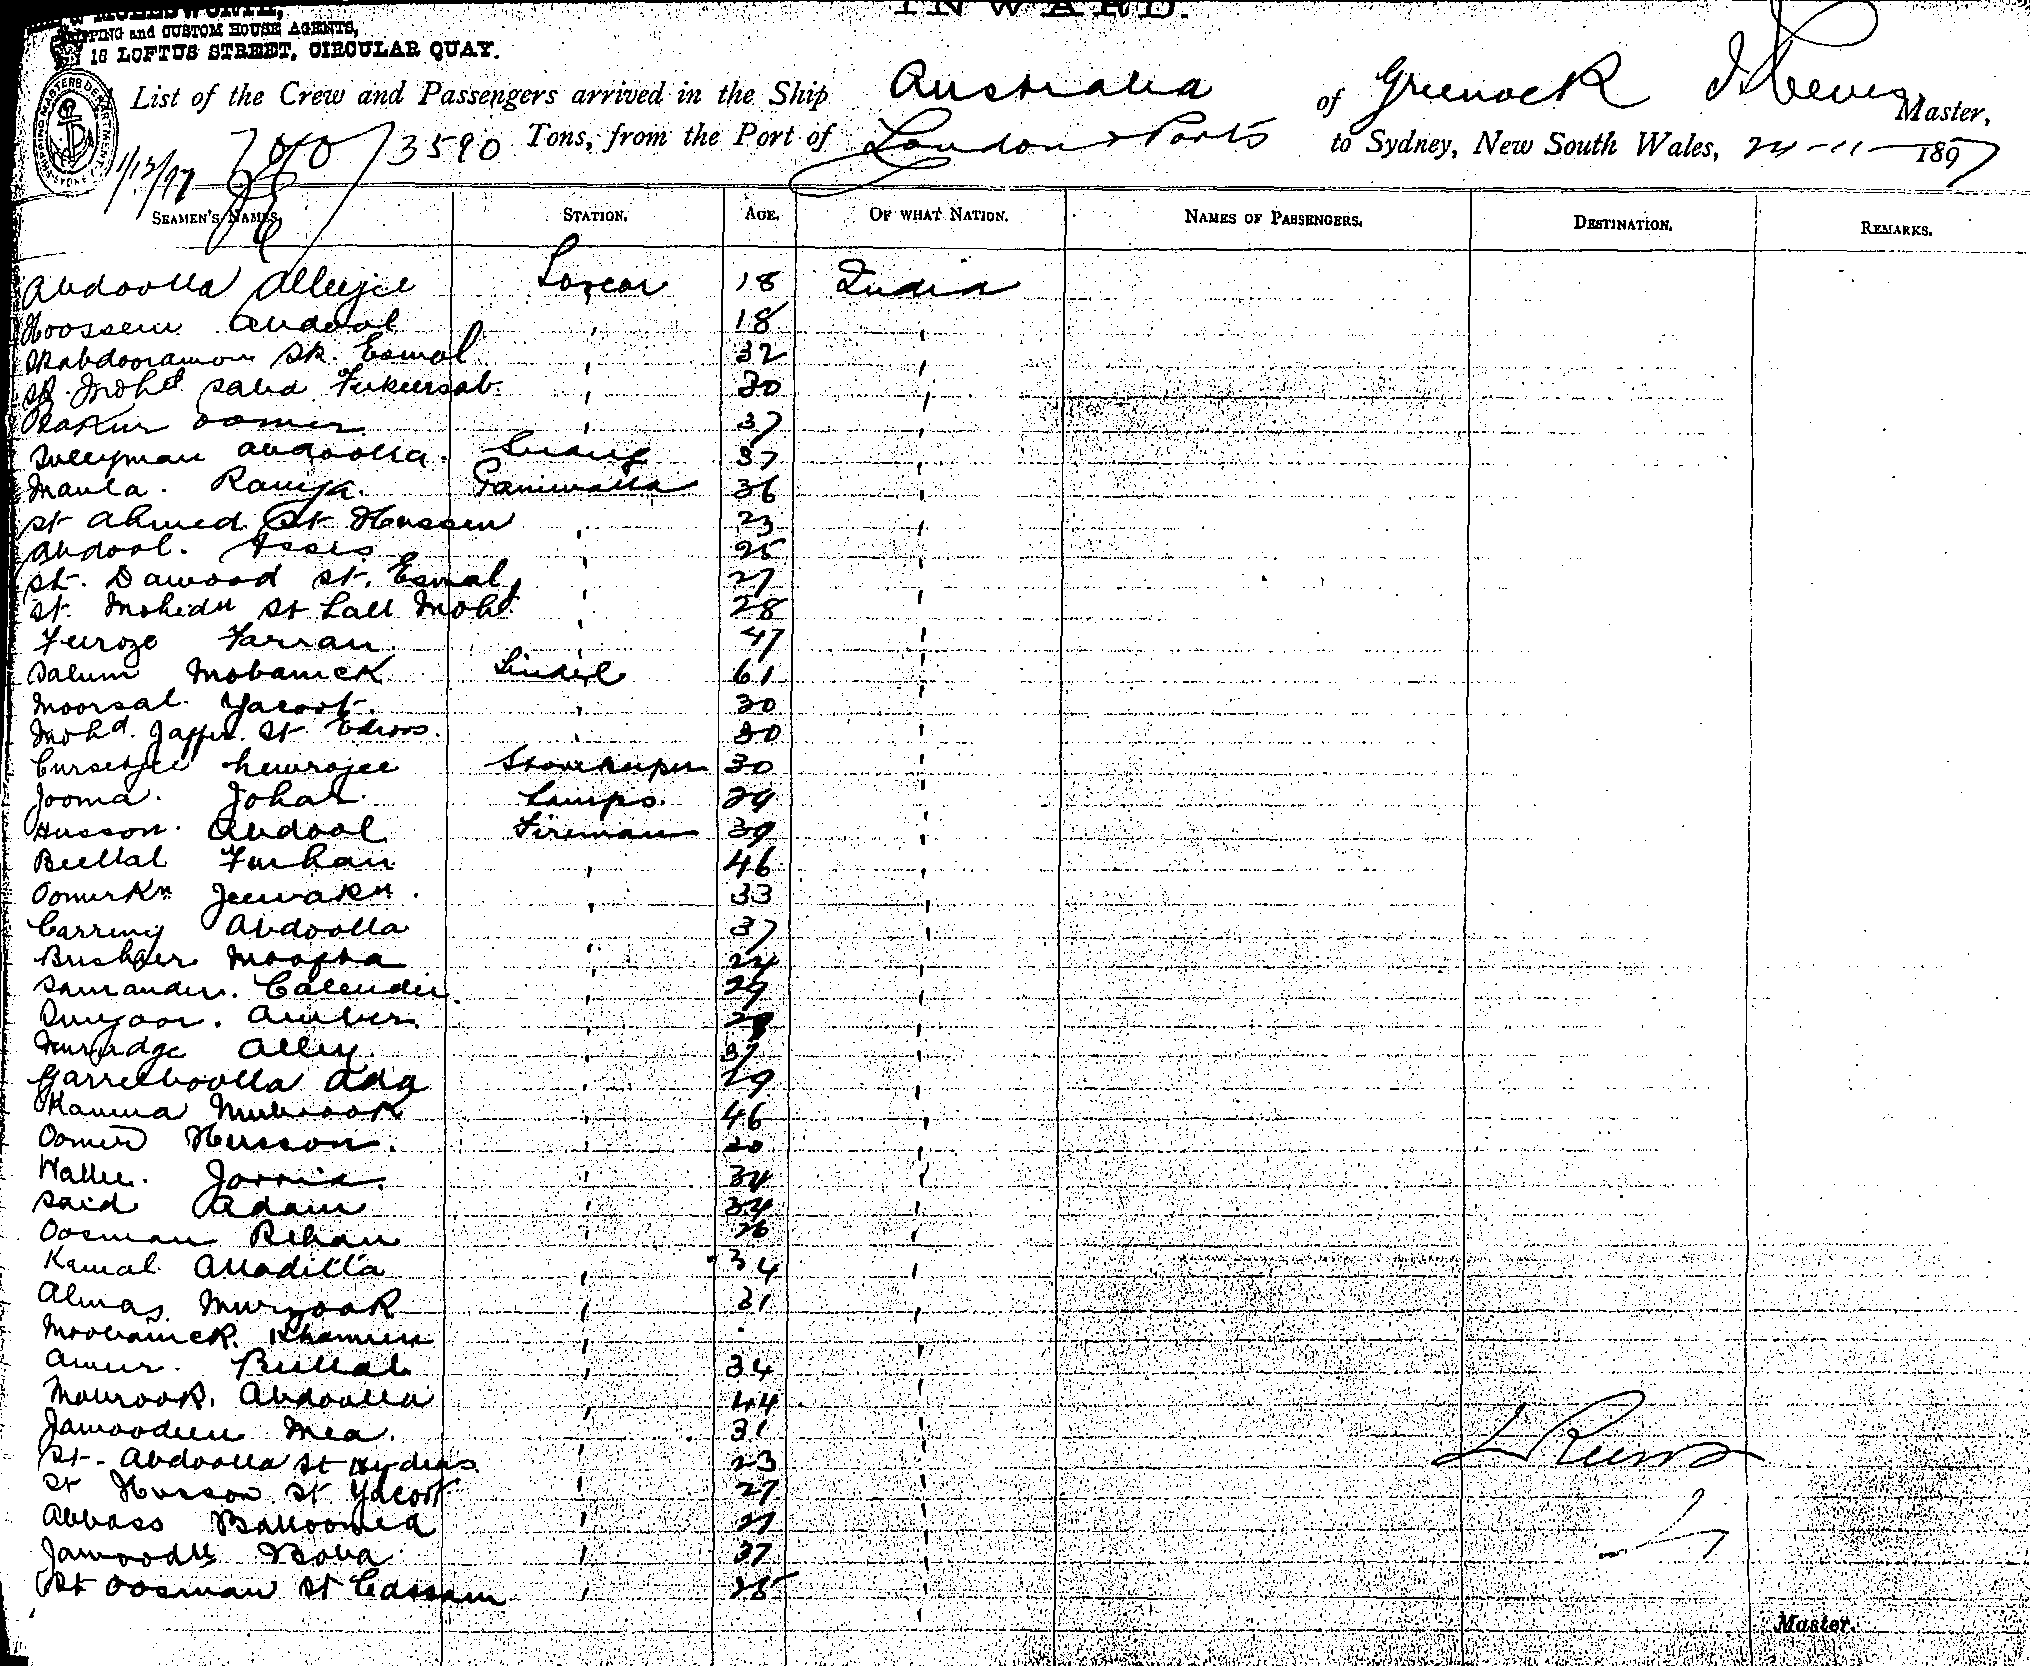 INWARD.
MOLESWORTH,
SHIPPING and CUSTOM HOUSE AGENTS,
18 LOFTUS STREET, CIRCULAR QUAY.
SHIPPING MASTERS DEPARTMENT
List of the Crew and Passengers arrived in the Ship Australia of Greenock Master,
1/12/97 3590 Tons, from the Port of London & Ports to Sydney, New South Wales, 24-11-1897
SEAMEN'S NAMES. STATION. AGE. OF WHAT NATION. NAMES OF PASSENGERS. DESTINATION. REMARKS.
Abdoolla Alleejee Lascar 18 India
Hoossein Abdool " 18 "
Skabdooramon Sk. Esmal " 32 "
Sk. Mohd Saba Fukeersab " 30 "
Bakur Oomer " 37 "
Suleyman Abdoolla. 37 "
Manla. Ramja. Paniwalla 36 "
St Ahmed St Hussen " 23 "
Abdool. " 25 "
St. Dawood St. Esmal " 27 "
St. Mohidn St Lall Mohd " 28 "
Feroze Farran " 47 "
Salum Mobarick 61 "
Moorsal Yacoot. " 30 "
Mohd. Jaffer. St Edroos. " 30 "
Cursetjee Storekeeper 30 "
Jooma. Johar Lamps. 29 "
Husson. Abdool Fireman 39 "
Bellal Furhan " 46 "
Oomerkn Jeewakn. " 33 "
Carrimy Abdoolla " 37 "
Busheer Moofta " 24 "
Samander. Calender. " 27 "
Amber. " 29 "
Alley. " 37 "
Garreeboolla Ada " 29 "
Kamma Mubrook " 46 "
Oomer Husson. " 20 "
Wallee. Jorria. " 34 "
Said Adam " 34 "
Oosman Rehan " 26 "
Kamal Alladilla " 34 "
Almas Murzook " 31 "
Moobarick. Khamies " "
Amur. Bellal " 34 "
Mabrook. Abdoolla " 44 "
Jawoodeen Mea. " 31 "
St. Abdoolla St Hydras " 23 "
St Husson St Yacoot " 27 "
Abbass Balloomea " 27 "
Jamoodn Bova " 37 "
St Oosman St Cassam " 25 "
Master.